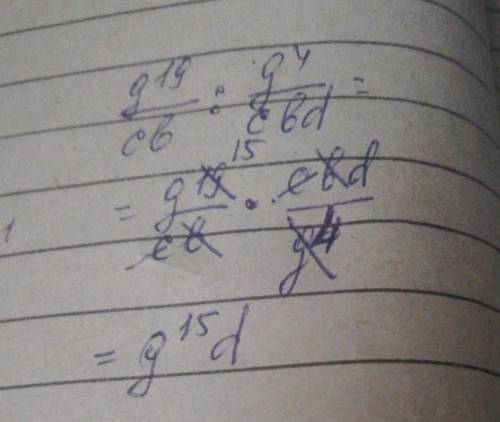 g^19/cb : g^4/cbd =
1 = g^19 15/cb · cbd/g^4
= g^15 d